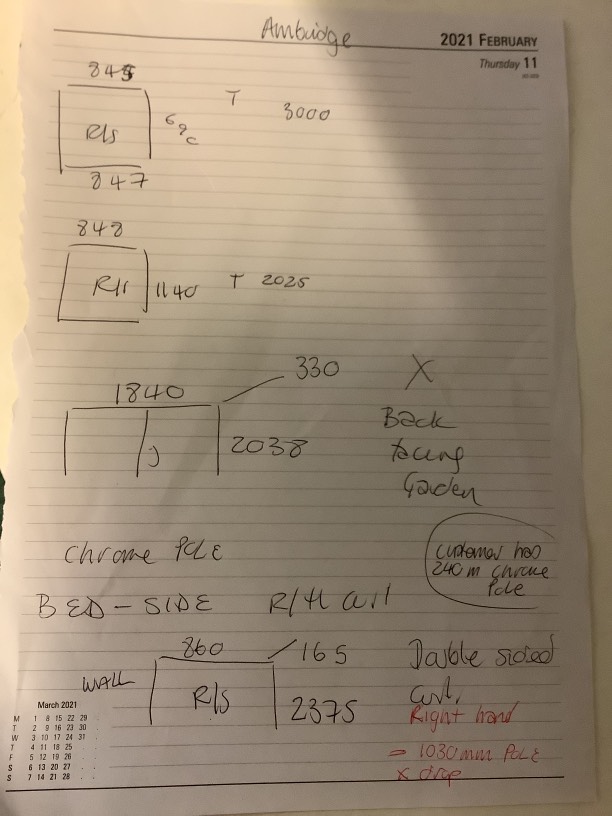 Ambridge
2021 FEBRUARY
Thursday 11
845
T 3000
R/S
847
848
R/S 1140 T 2025
330 X
1840
2038
Back
facing
Garden
Chrome POLE
customer has
240 m chrome
Pole
BED-SIDE R/H
860 165 Double sided
WALL R/S 2375
Right hand
= 1030mm POLE
x drop
March 2021
M 1 8 15 22 29
T 2 9 16 23 30
W 3 10 17 24 31
T 4 11 18 25
F 5 12 19 26
S 6 13 20 27
S 7 14 21 28